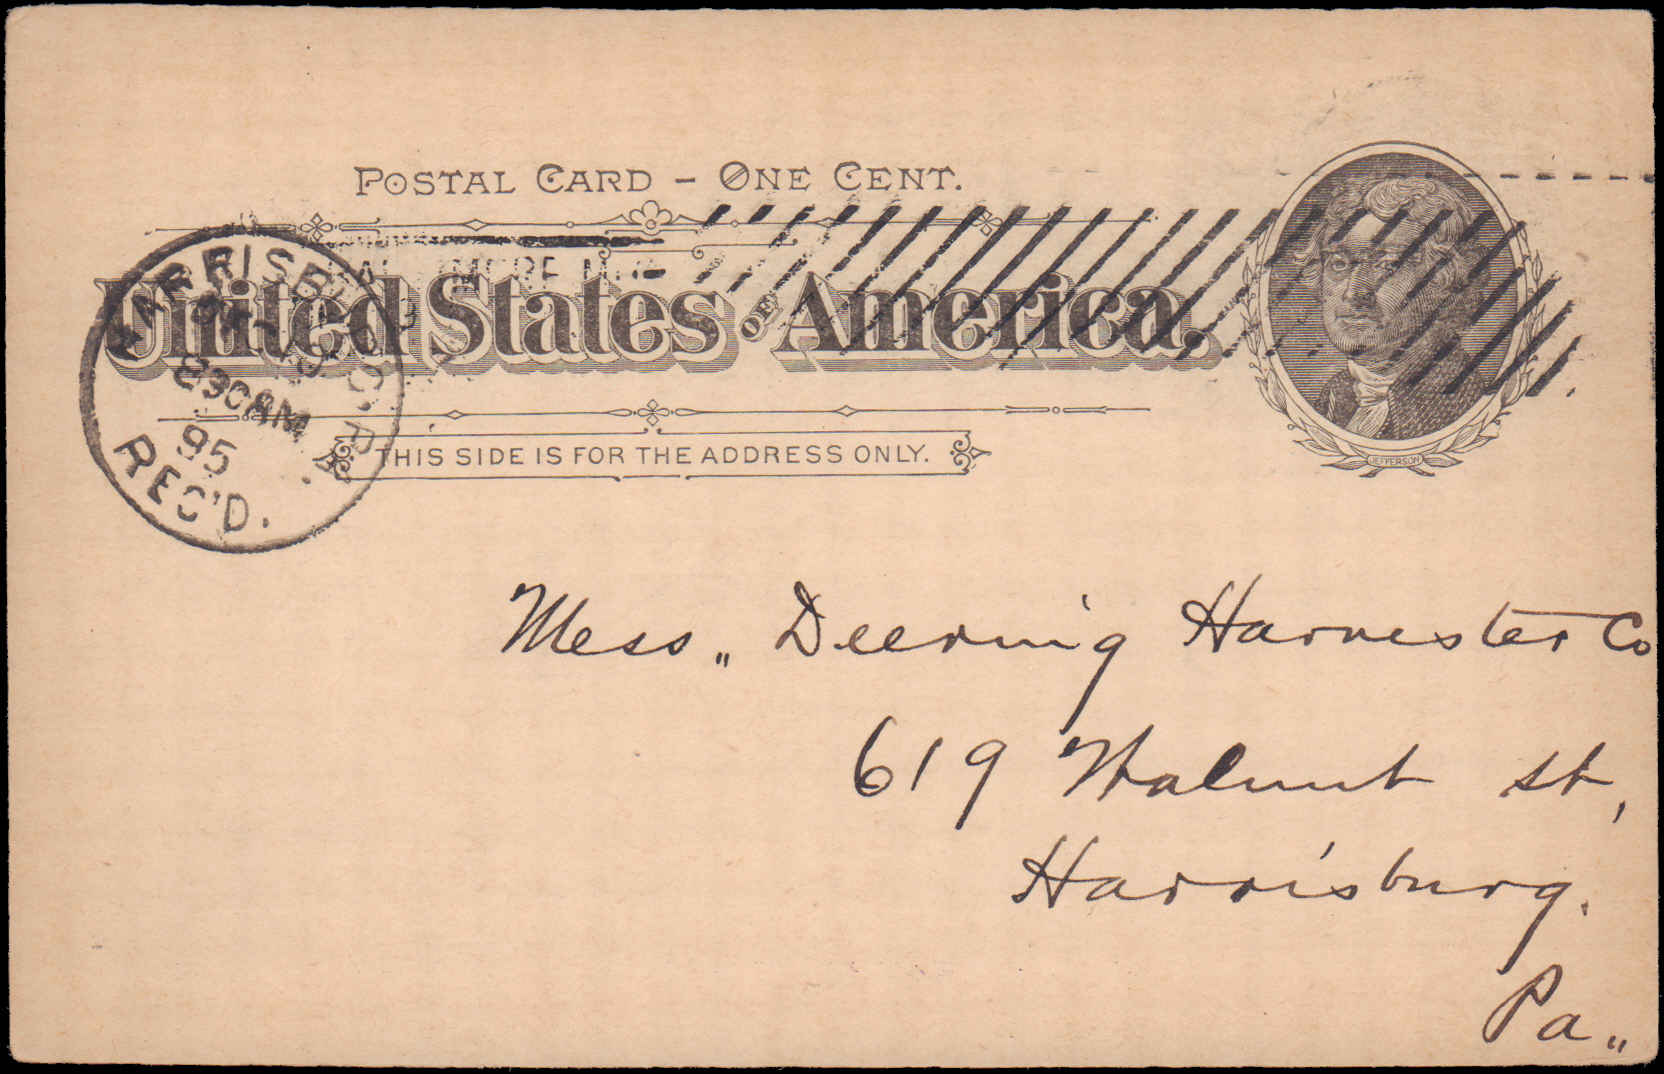 POSTAL CARD – ONE CENT.
United States OF America.
THIS SIDE IS FOR THE ADDRESS ONLY.
JEFFERSON
HARRISBURG. PA.
8 30 AM
95
REC'D.
Mess„ Deering Harvester Co
619 Walnut st,
Harrisburg.
Pa„